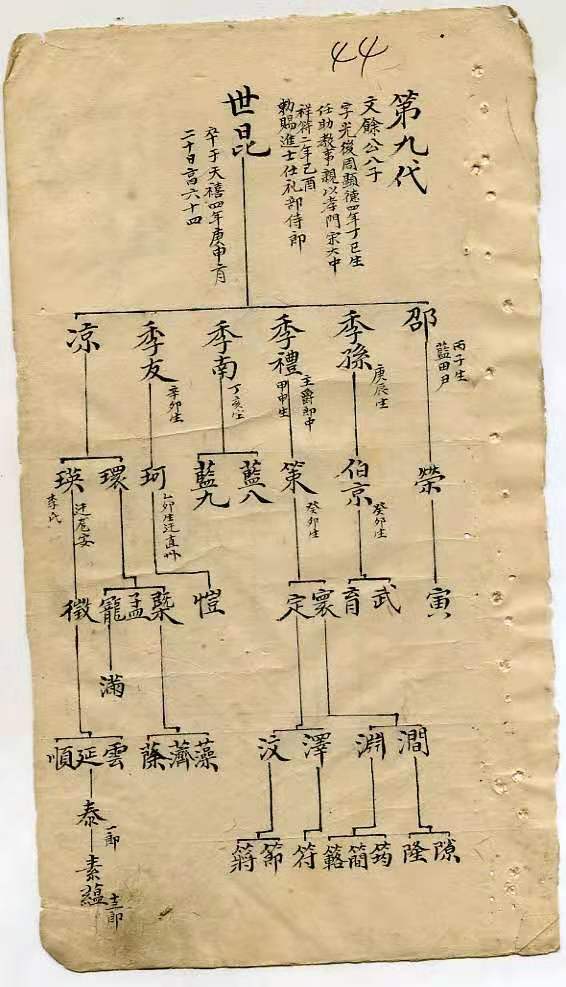 44
第九代
文餘公八子
字光後周顯德四年丁巳生
任助教事親以孝門宗大中
祥符二年己酉
勅賜進士任礼部侍郎
世昆
卒于天禧四年庚申
二十日六十四
邵
丙子生
藍田尹
季孫
庚辰生
季禮
主爵郎中
甲申生
季南
丁亥生
季友
辛卯生
凉
榮
伯京
癸卯生
策
癸卯生
藍八
藍九
珂
乙卯生迁直州
環
瑛
李氏
寅
武
育
寰
定
愷
槩
孟
寵
徵
滿
澗
淵
澤
汶
藻
薺
蔭
雲
延
順
隙
隆
筠
簡
簵
符
節
蒻
泰
一郎
素蘊